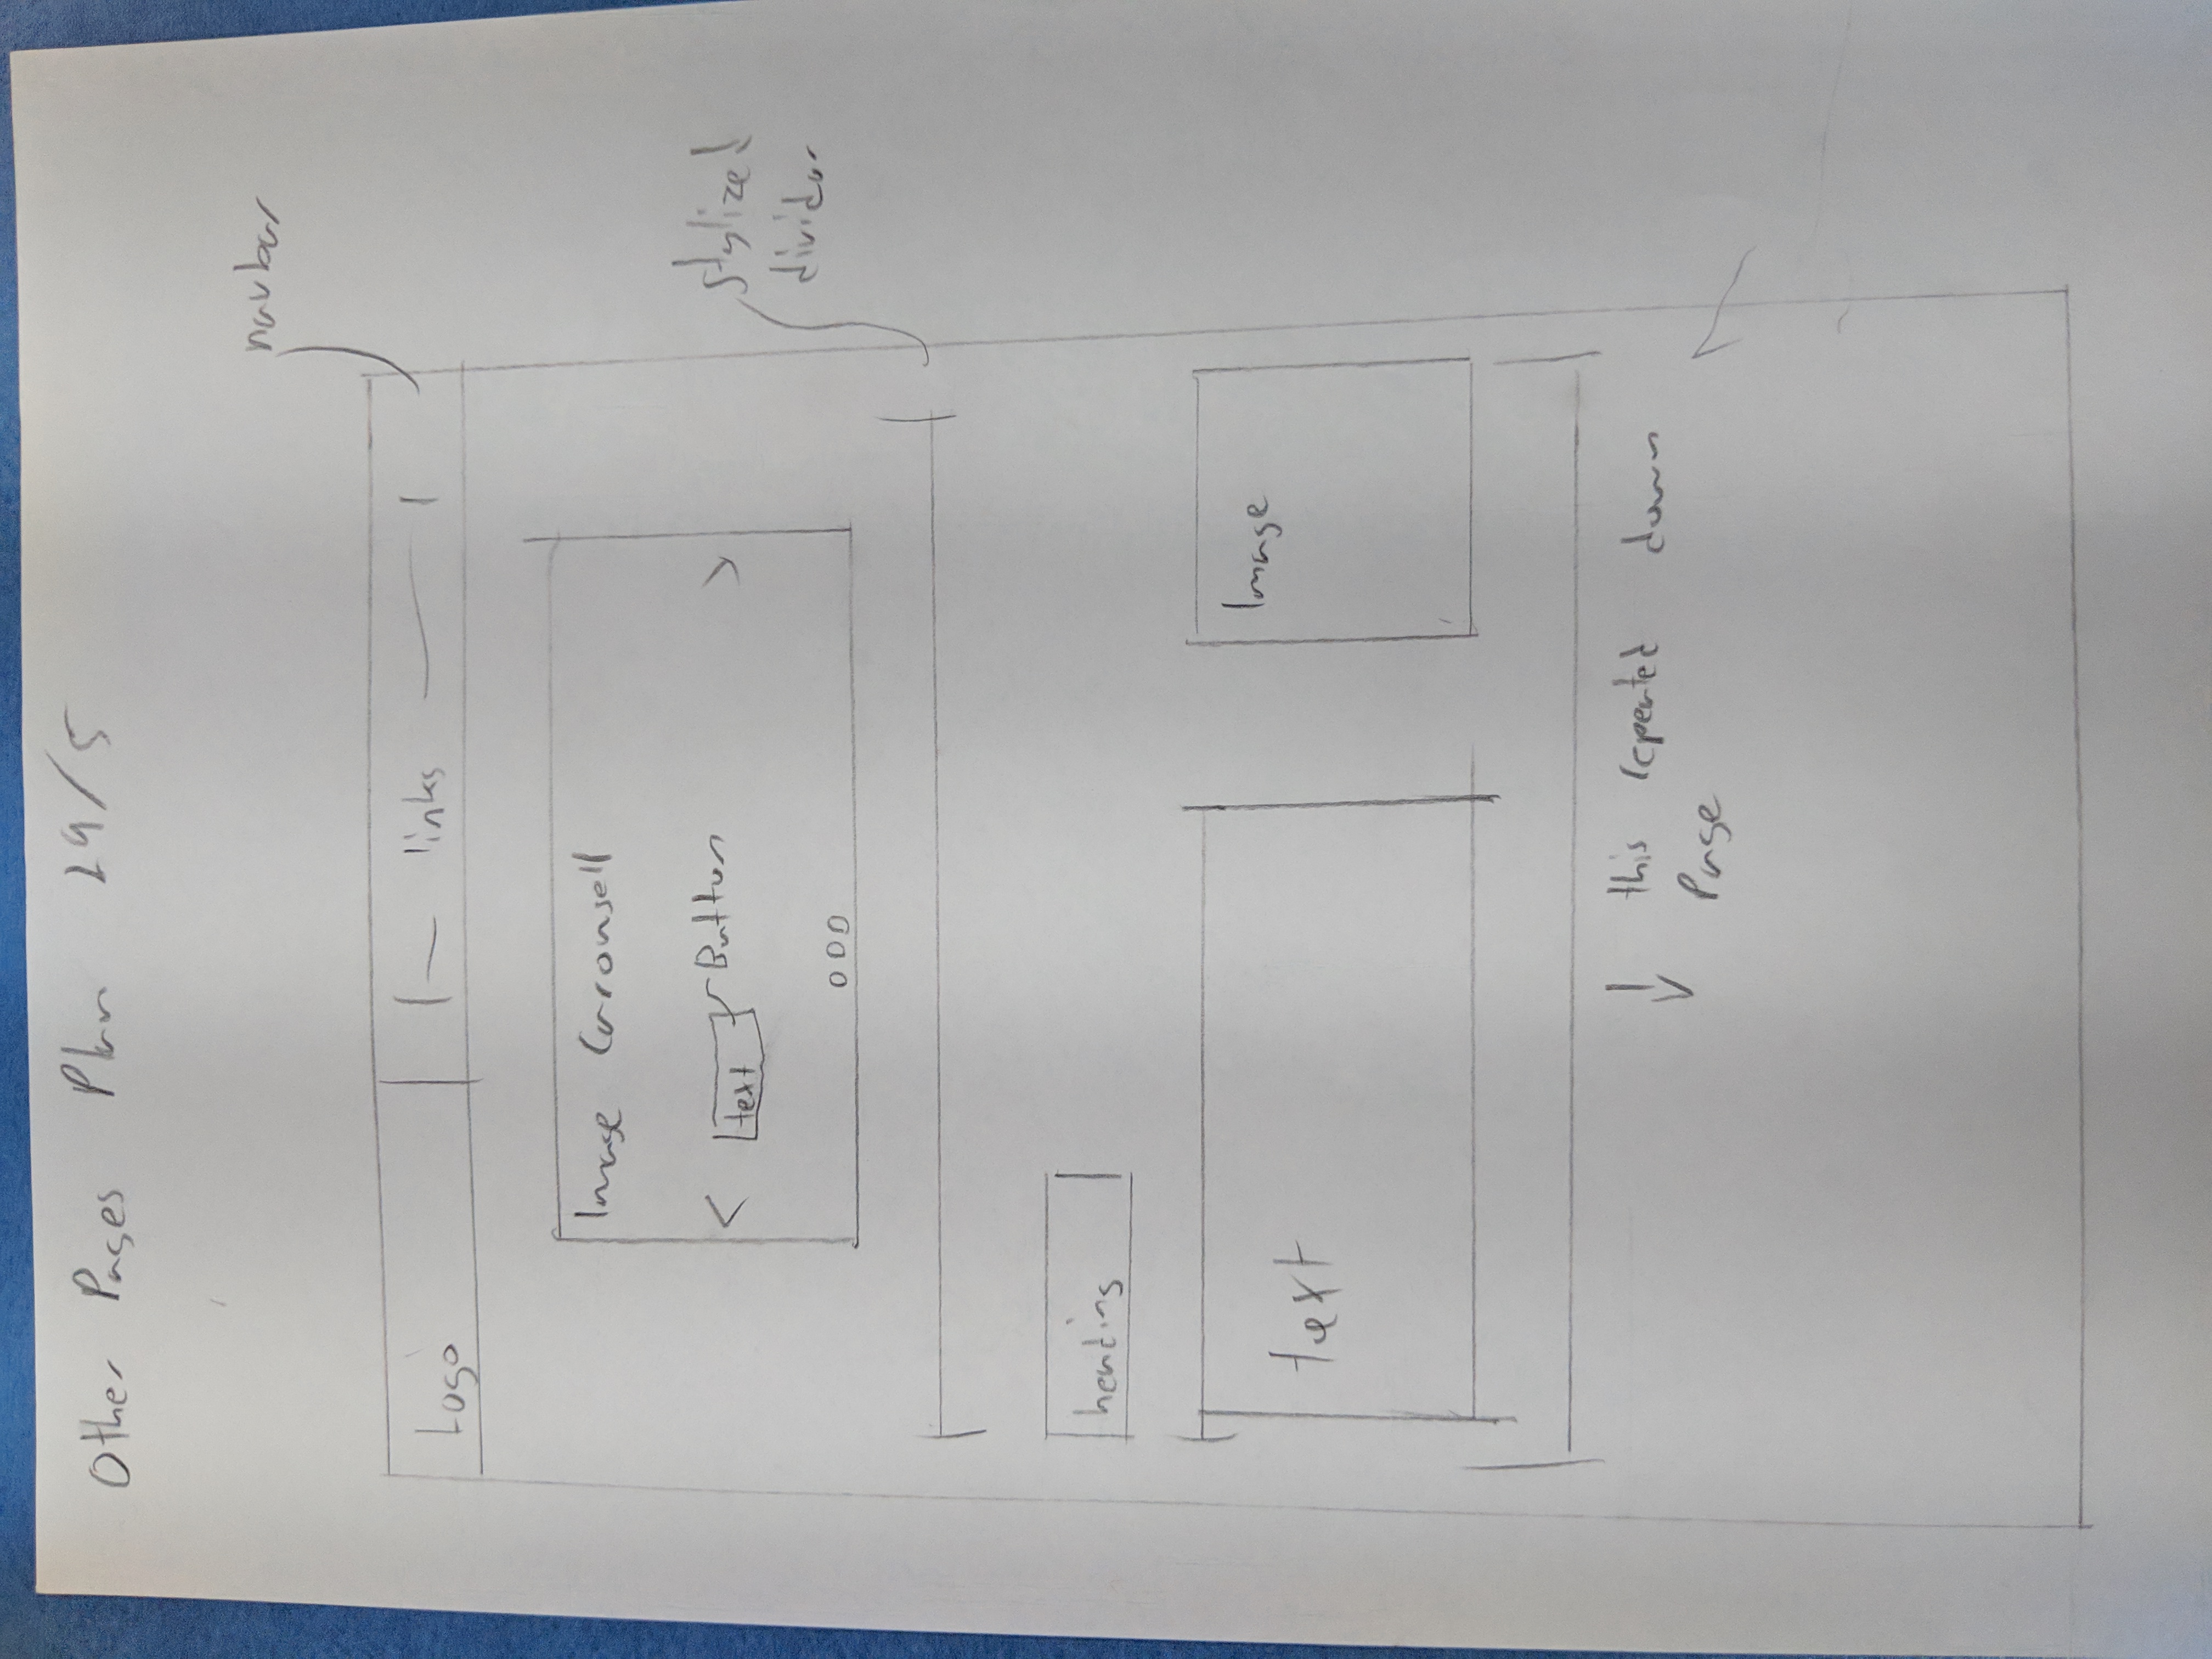 Other Pages Plan 29/5
navbar
Logo
links
Image Carousell
< text Button >
stylized
divider
heading
text
Image
this repeated down
Page